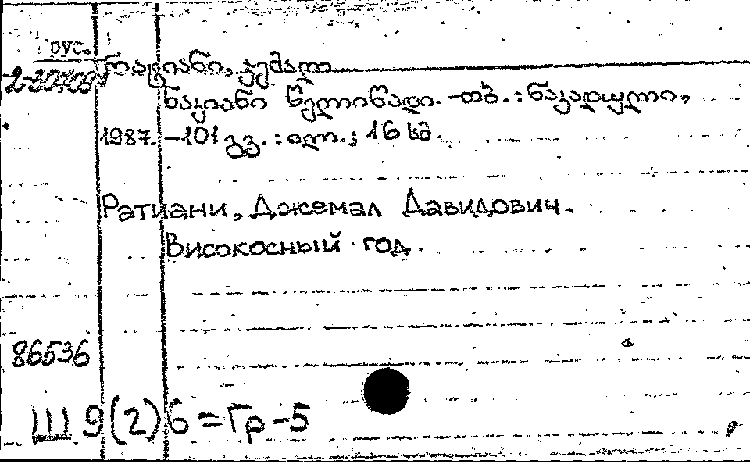 рус.
რატიანი, ჯემალ
ნაკიანი წელიწადი. -თბ. : ნაკადული,
1987. -101 გვ. : ილ. ; 16 სმ.
Ратиани, Джемал Давидович.
Високосный год.
86536
Ш 9(2)6=Гр-5